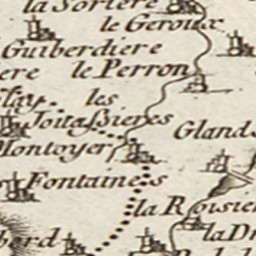 la Sortere
le Geroux
Guiberdiere
ere le Perron
lay les
Joitassieres
Gland
Montoyer
Fontaines
la Roisie
bord
la D